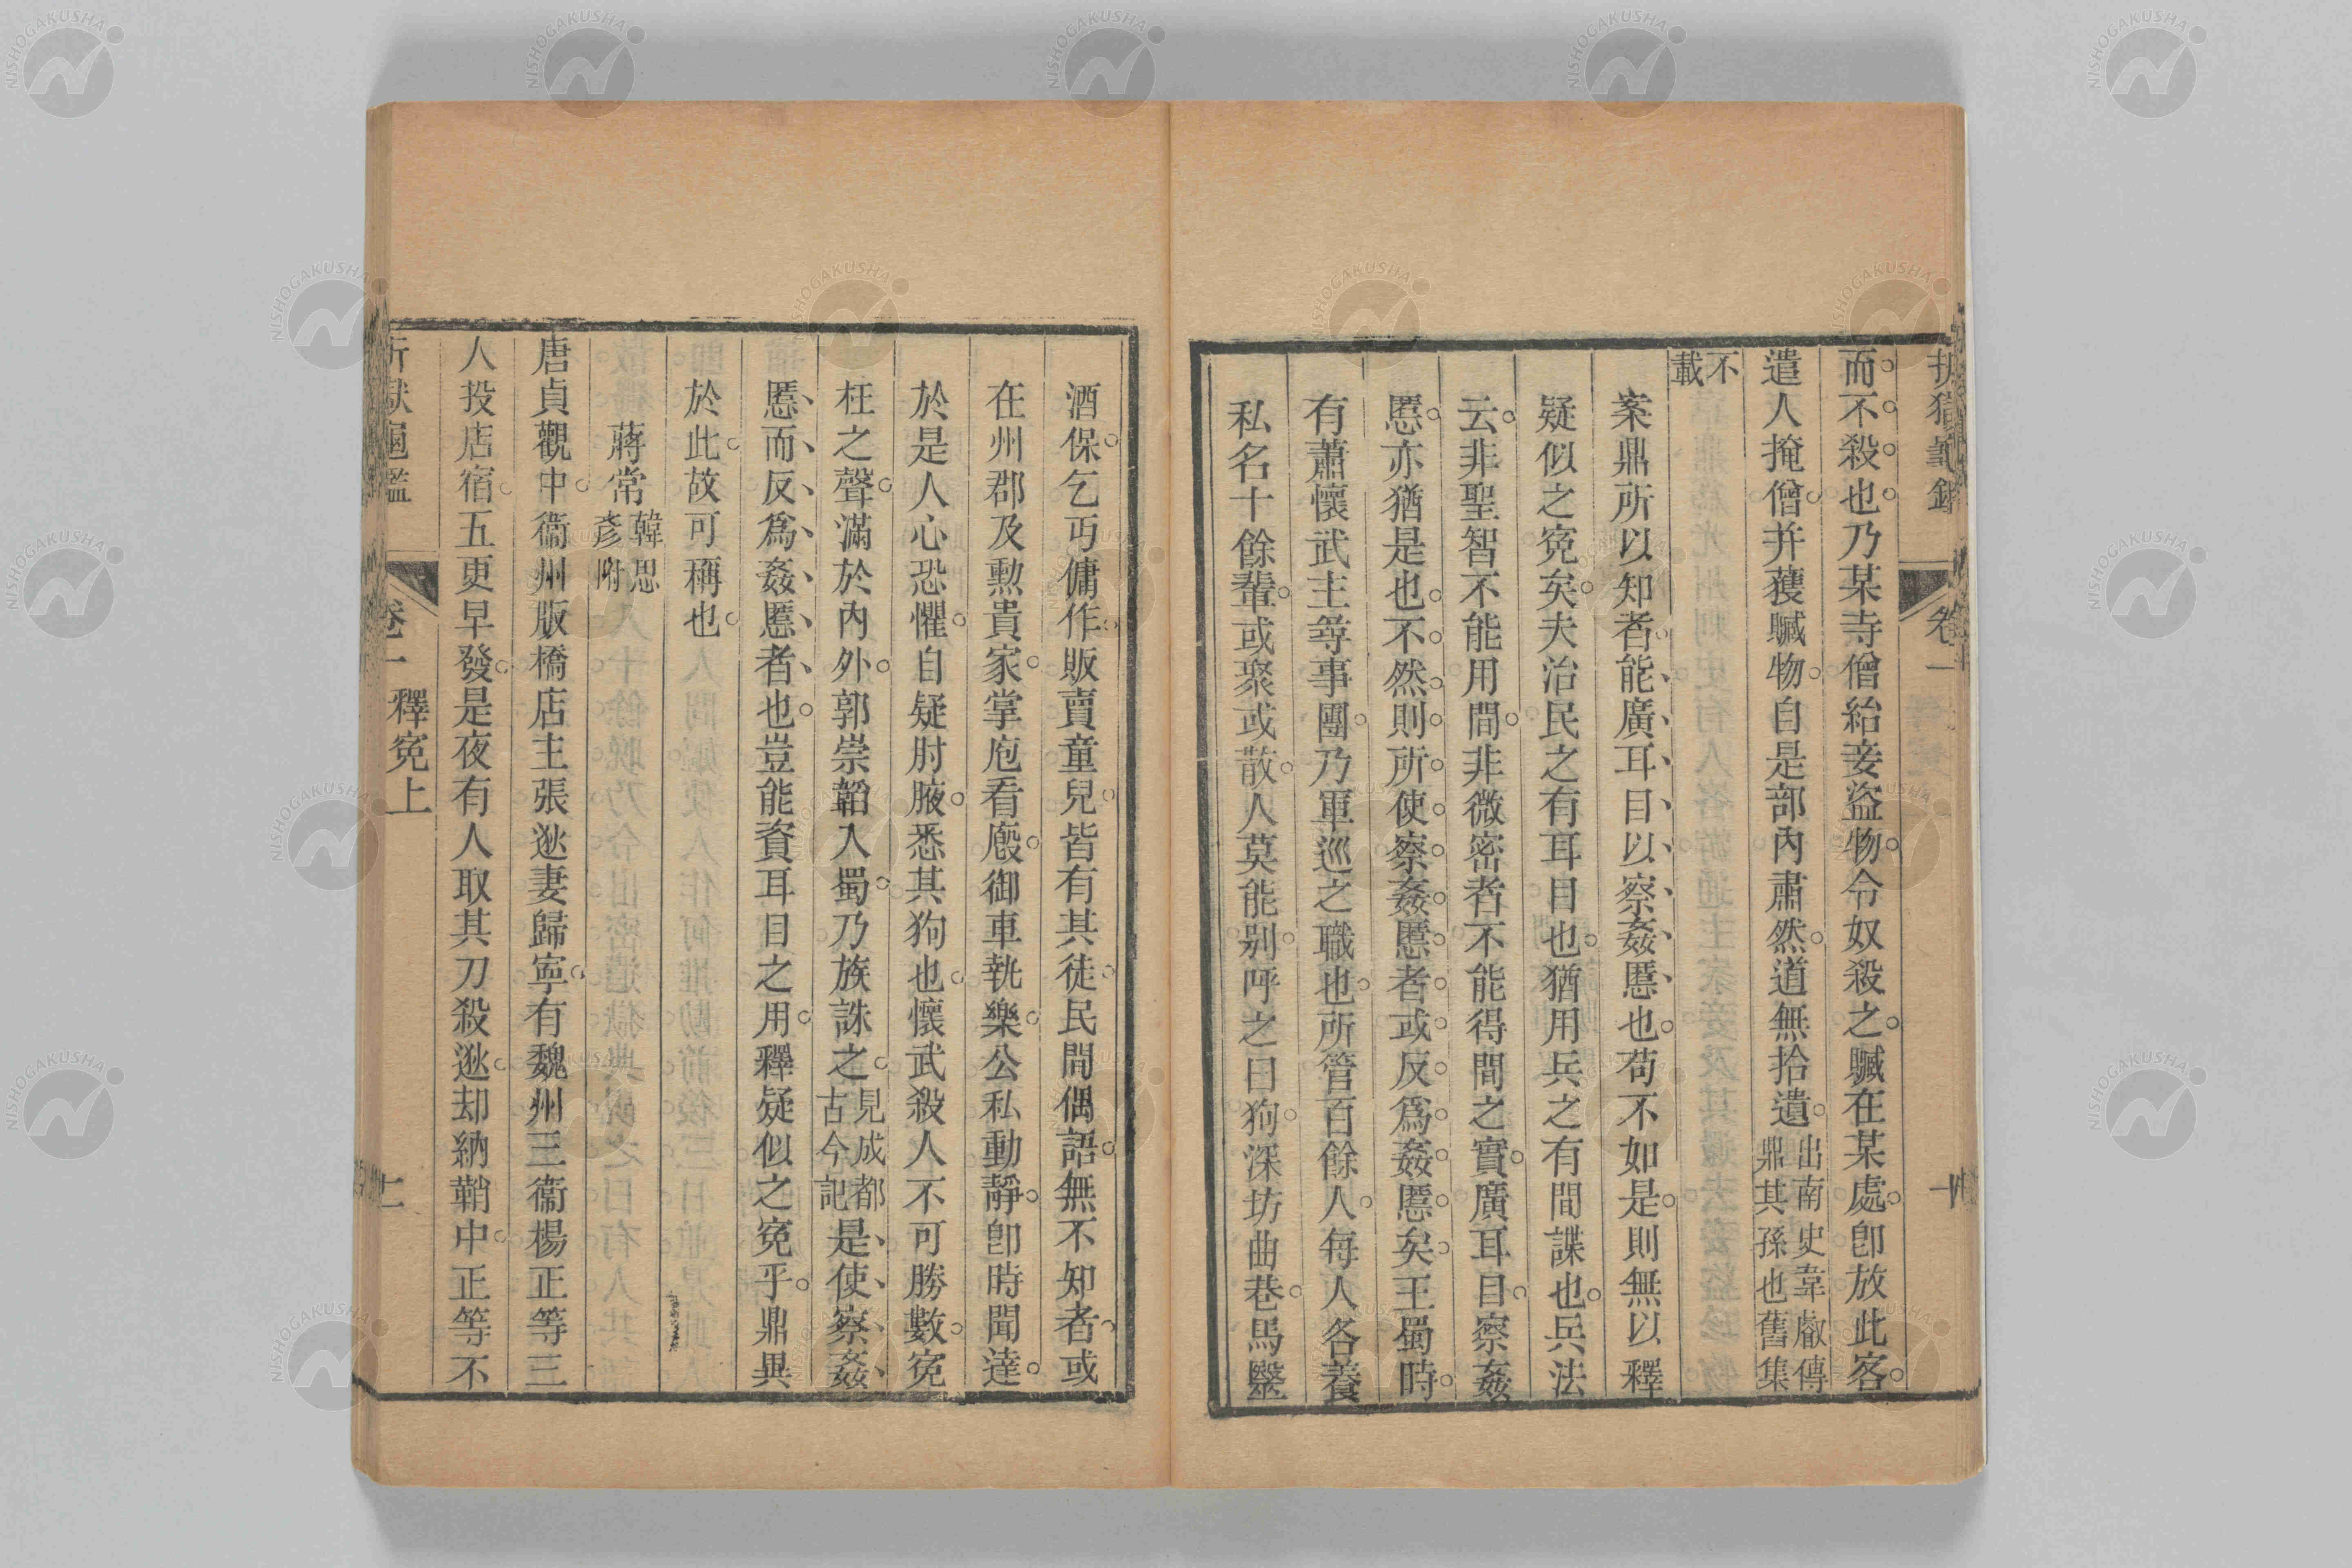 而不殺也乃某寺僧紿妾盜物令奴殺之贓在某處卽放此客
遣人掩僧并獲贓物自是部內肅然道無拾遺出南史韋叡傳鼎其孫也舊集
不載
案鼎所以知者能廣耳目以察姦慝也苟不如是則無以釋
疑似之冤矣夫治民之有耳目也猶用兵之有間諜也兵法
云非聖智不能用間非微密者不能得間之實廣耳目察姦
慝亦猶是也不然則所使察姦慝者或反爲姦慝矣王蜀時
有蕭懷武主等事團乃軍巡之職也所管百餘人每人各養
私名十餘輩或聚或散人莫能別呼之曰狗深坊曲巷馬醫
酒保乞丐傭作販賣童兒皆有其徒民間偶語無不知者或
在州郡及勲貴家掌庖看廐御車執樂公私動靜卽時聞達
於是人心恐懼自疑肘腋悉其狗也懷武殺人不可勝數冤
枉之聲滿於內外郭崇韜入蜀乃族誅之見成都古今記是使察姦
慝而反爲姦慝者也豈能資耳目之用釋疑似之冤乎鼎異
於此故可稱也
蔣常韓思彥附
唐貞觀中衞州版橋店主張逖妻歸寧有魏州三衞楊正等三
人投店宿五更早發是夜有人取其刀殺逖却納鞘中正等不
卷一 釋冤上
NISHOGAKUSHA